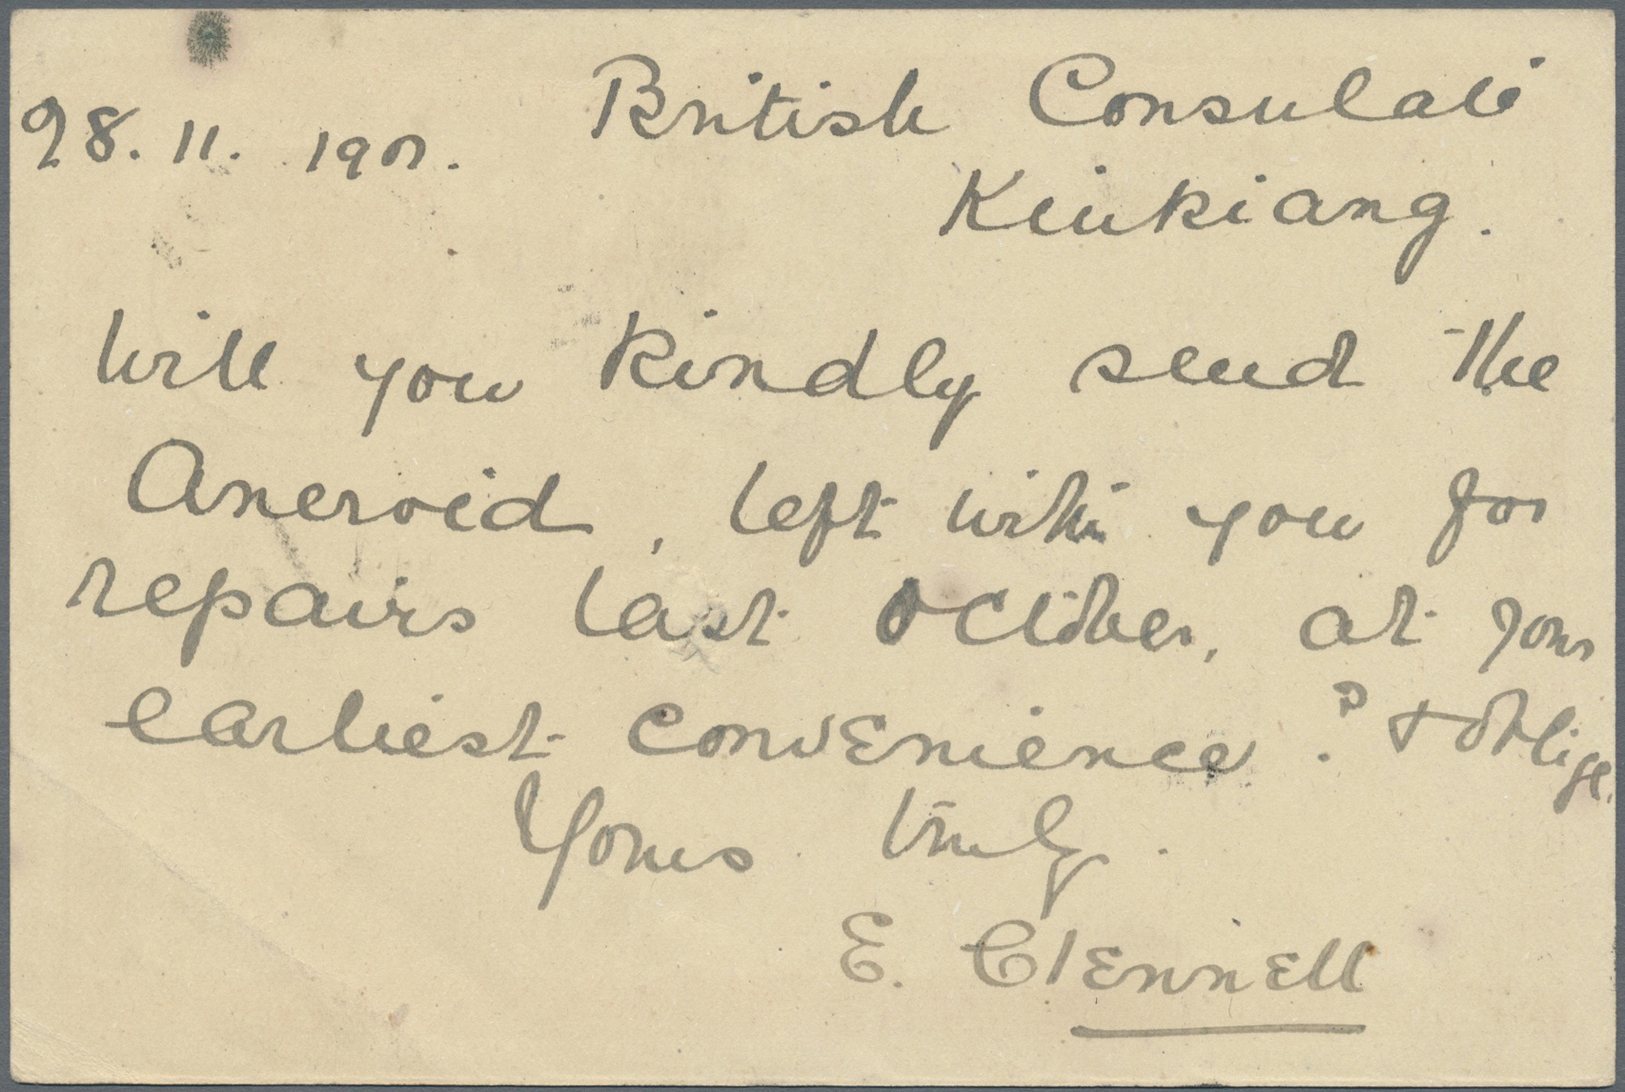 28. 11. 1901.
British Consulate
Kiukiang.
Will you kindly send the
Aneroid, left with you for
repairs last October, at your
earliest convenience? & oblige.
Yours truly.
E. Clennell